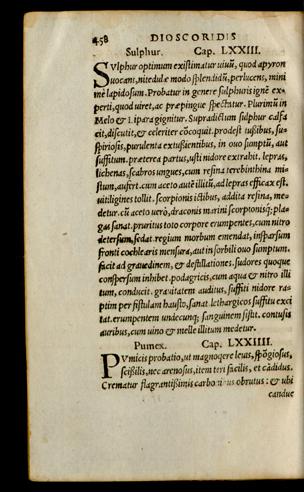 458 DIOSCORIDIS
Sulphur. Cap. LXXIII.
SVlphur optimum existimatur uiuũ, quod apyron
uocant, nitedulæ modo splendidũ, perlucens, mini
mè lapidosum. Probatur in genere sulphuris ignẽ ex-
perti, quod uiret, ac præpingue spectatur. Plurimũ in
Melo & Lipara gignitur. Supradictum sulphur calfa
cit, discutit, & celeriter cõcoquit. prodest tussibus, su-
spiriosis, purulenta extussientibus, in ouo sumptũ, aut
suffitum. præterea partus, usti nidore extrahit. lepras,
lichenas, scabros ungues, cum resina terebinthina mi-
stum, aufert. cum aceto autẽ illitũ, ad lepras efficax est.
uitiligines tollit. scorpionis ictibus, addita resina, me-
detur. cũ aceto uerò, draconis marini scorpionisq; pla-
gas sanat. pruritus toto corpore erumpentes, cum nitro
detersum, sedat. regium morbum emendat, inspersum
fronti cochlearis mensura, aut in sorbili ouo sumptum.
facit ad grauedinem, & destillationes. sudores quoque
conspersum inhibet. podagricis, cum aqua & nitro illi
tum, conducit. grauitatem auditus, suffiti nidore ra-
ptim per fistulam hausto, sanat. lethargicos suffitu exci
tat. erumpentem undecunq; sanguinem sistit. contusis
auribus, cum uino & melle illitum medetur.
Pumex. Cap. LXXIIII.
PVmicis probatio, ut magnopere leuis, spõgiosus,
scissilis, nec arenosus, item teri facilis, et cãdidus.
Crematur flagrantissimis carbonibus obrutus: & ubi
candue